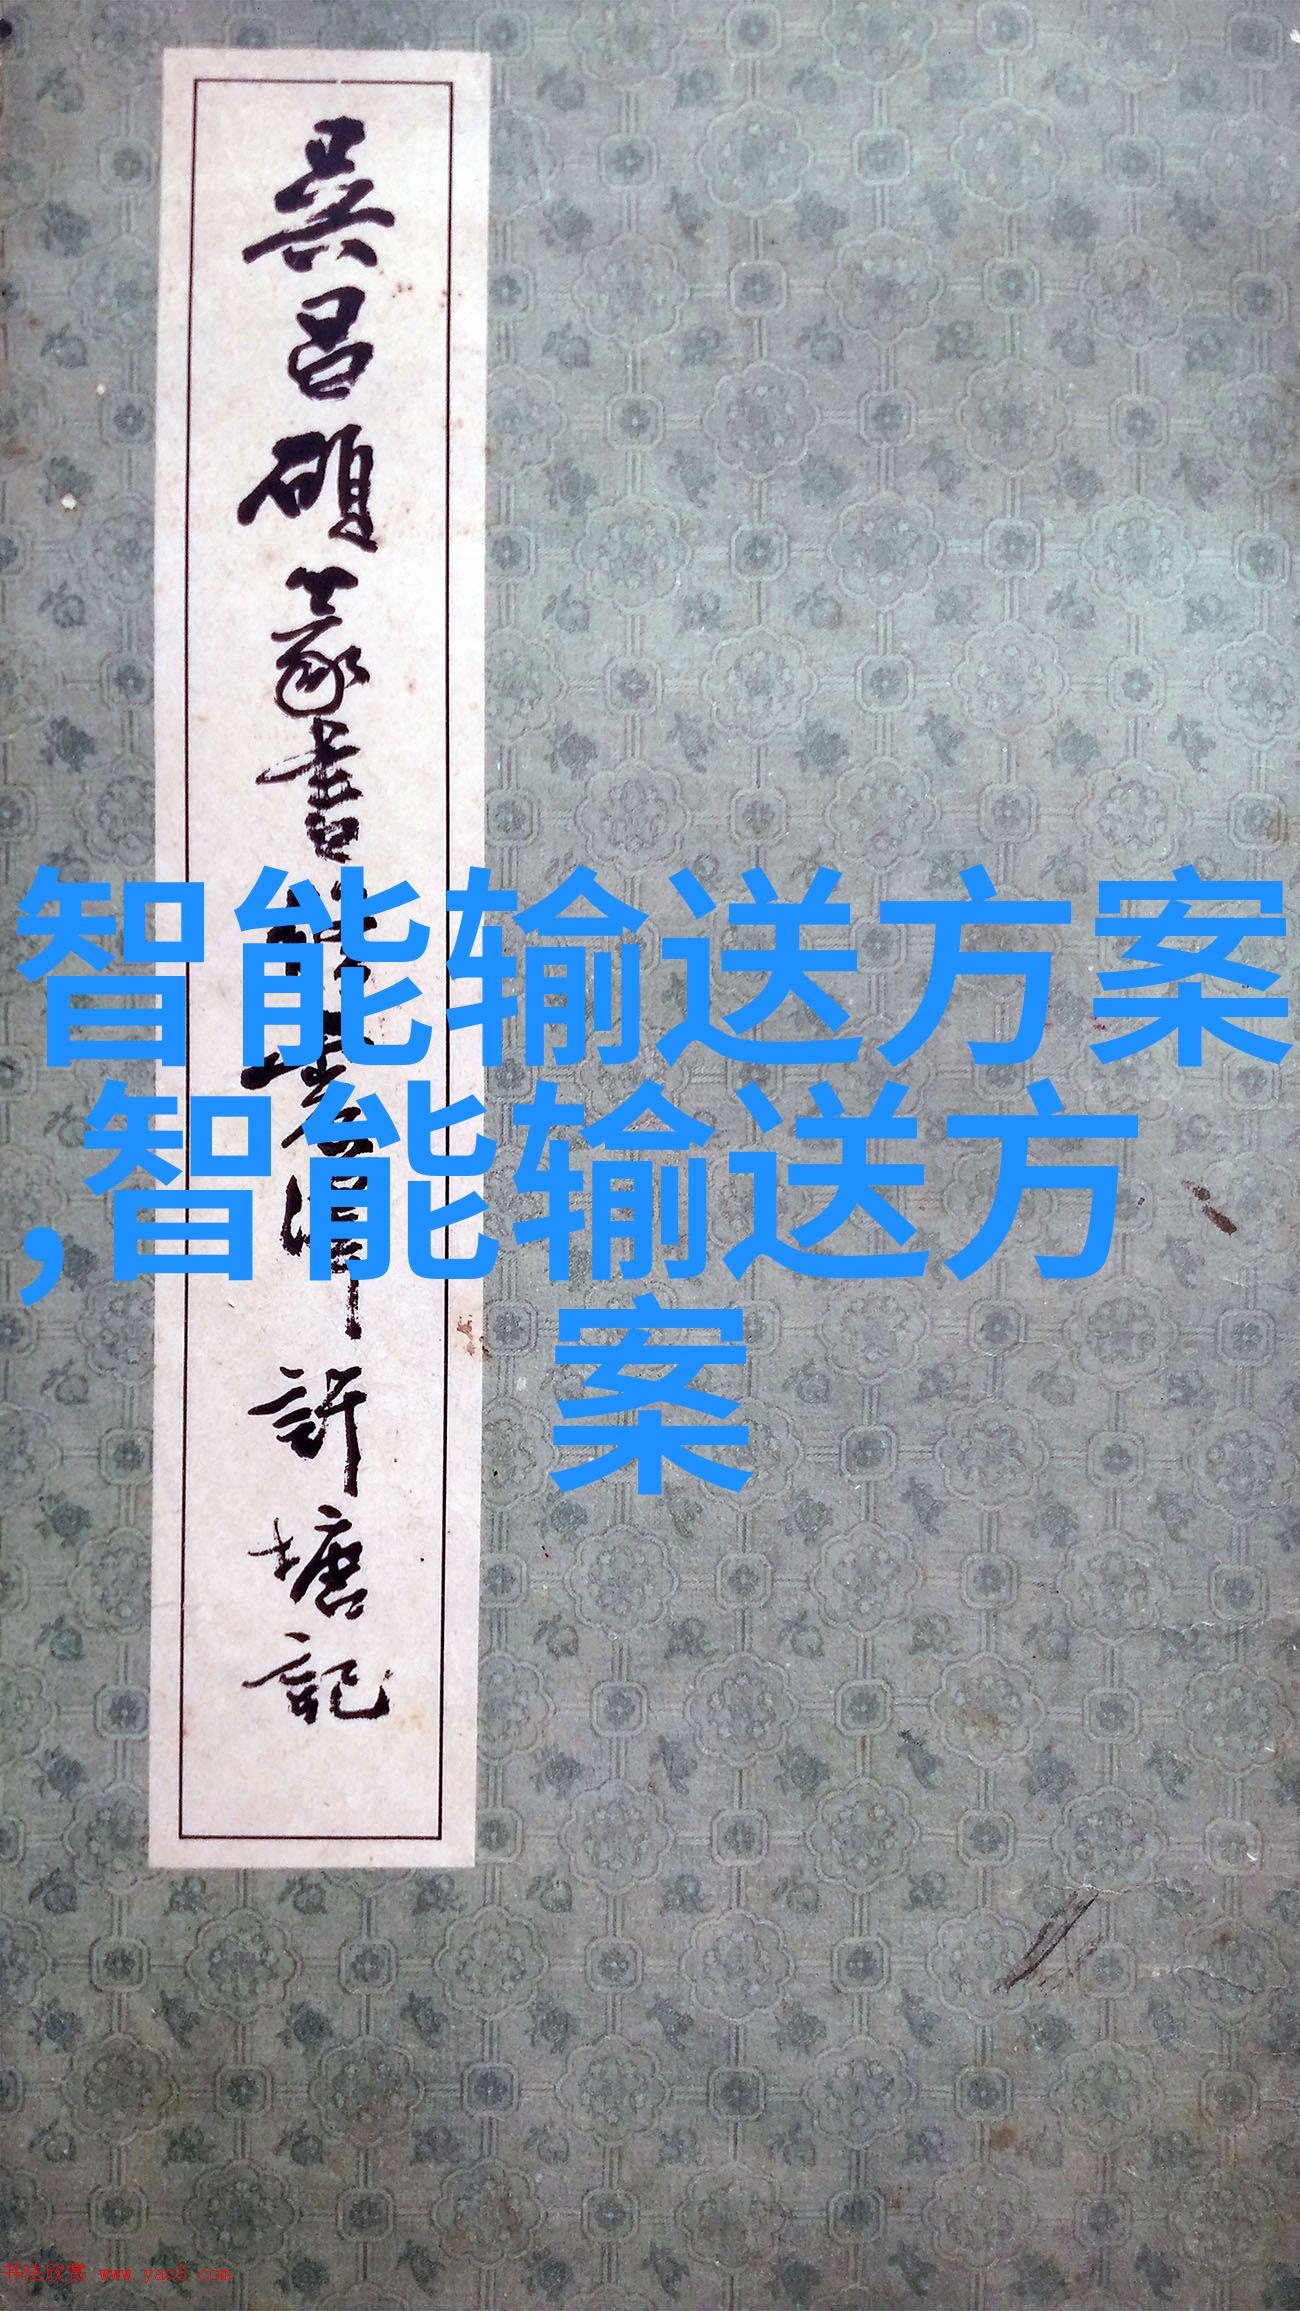 吳昌碩篆書許塘記
智能输送方案
,智能输送方
案
书法欣赏 www.yac8.com